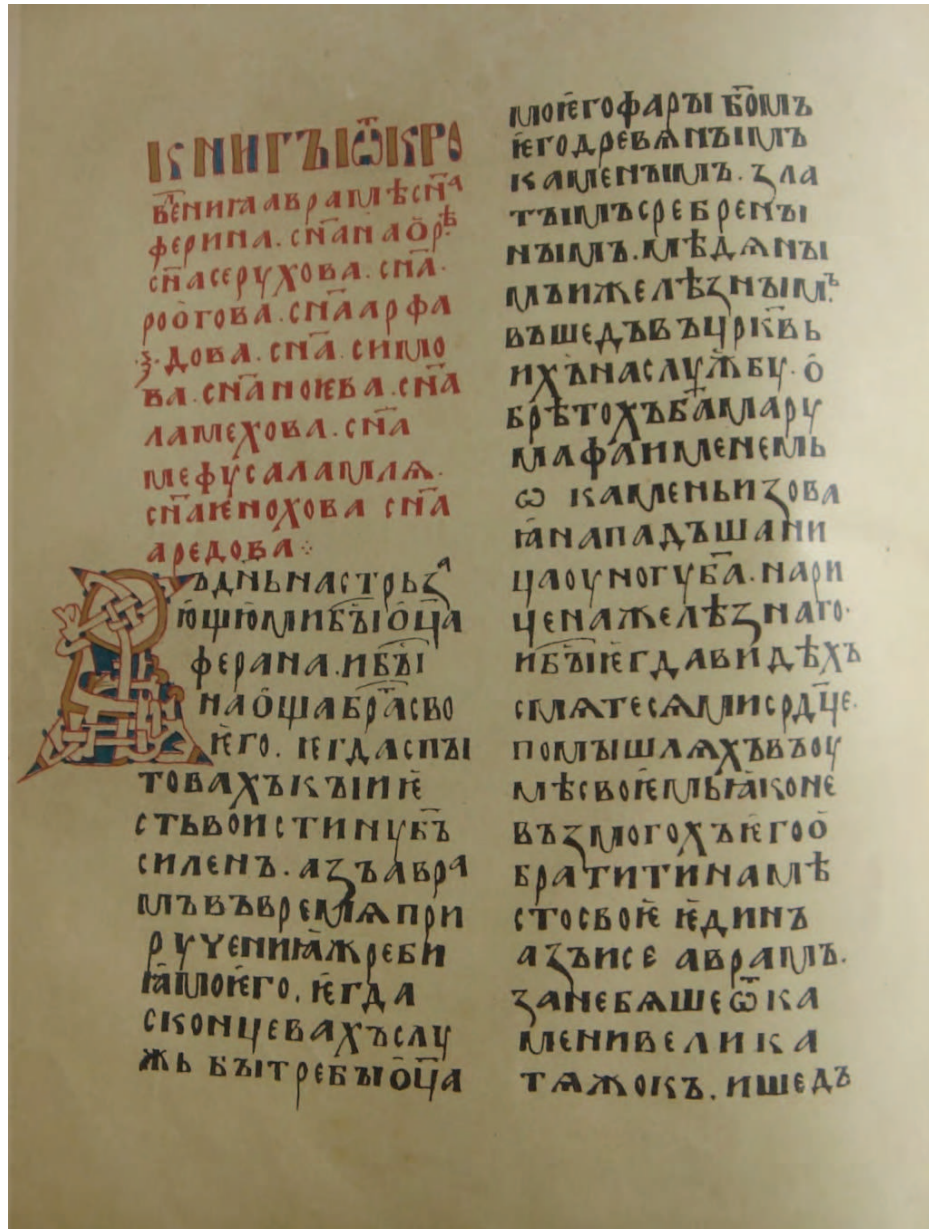 КНИГЪІѾКРО
вⷮениꙗаврамѣсн҃аⷶ
ферина.сн҃анаѻрⷡѣ
сн҃асерухова.сн҃а.
роѻгова.сн҃аарфа
·ѯ·дова.сн҃а.симо
ва.сн҃аноѥва.сн҃а
ламехова.сн҃а
мефусаламлѧ.
сн҃аѥнохова сн҃а
аредова⁘
Въдн҃ьнастрьзⷶ
ющюмиб҃ъıѻц҃а
ферана.иб҃ъı
наѻщабра҃сво
ѥго.ѥгдаспъı
товахъкъıиѥ
стьвоистинуб҃ъ
силенъ.азъаврⷶ
мъвъвремѧпри
ручениꙗжреби
ꙗмоѥго.ѥгда
сконцевахъслу
жьбъıтребъıѻц҃а
моѥгофаръıб҃омъ
ѥгодревѧнъıмъ
каменъıмъ.зла
тъıмъсребренъı
нъıмъ.мѣдѧнъı
мъижелѣзнъıм⷏.
въшедъвъцр҃квь
ихънаслужбу.ѻ
брѣтохъб҃амару
мафаименемь
ѡ каменьизова
ꙗнападъшани
цаоуногуб҃а.нари
ценажелѣзнаго.
иб҃ъıѥгдавидѣхъ
смѧтесѧмисрдⷣце.
помъıшлѧхъвъоу
мѣсвоѥмьꙗконе
възмогохъѥгоѻ
братитинамѣ
стосвоѥ ѥдинъ
азъисе аврамъ.
занебѧшеѿка
менивелика
тѧжокъ.ишедъ